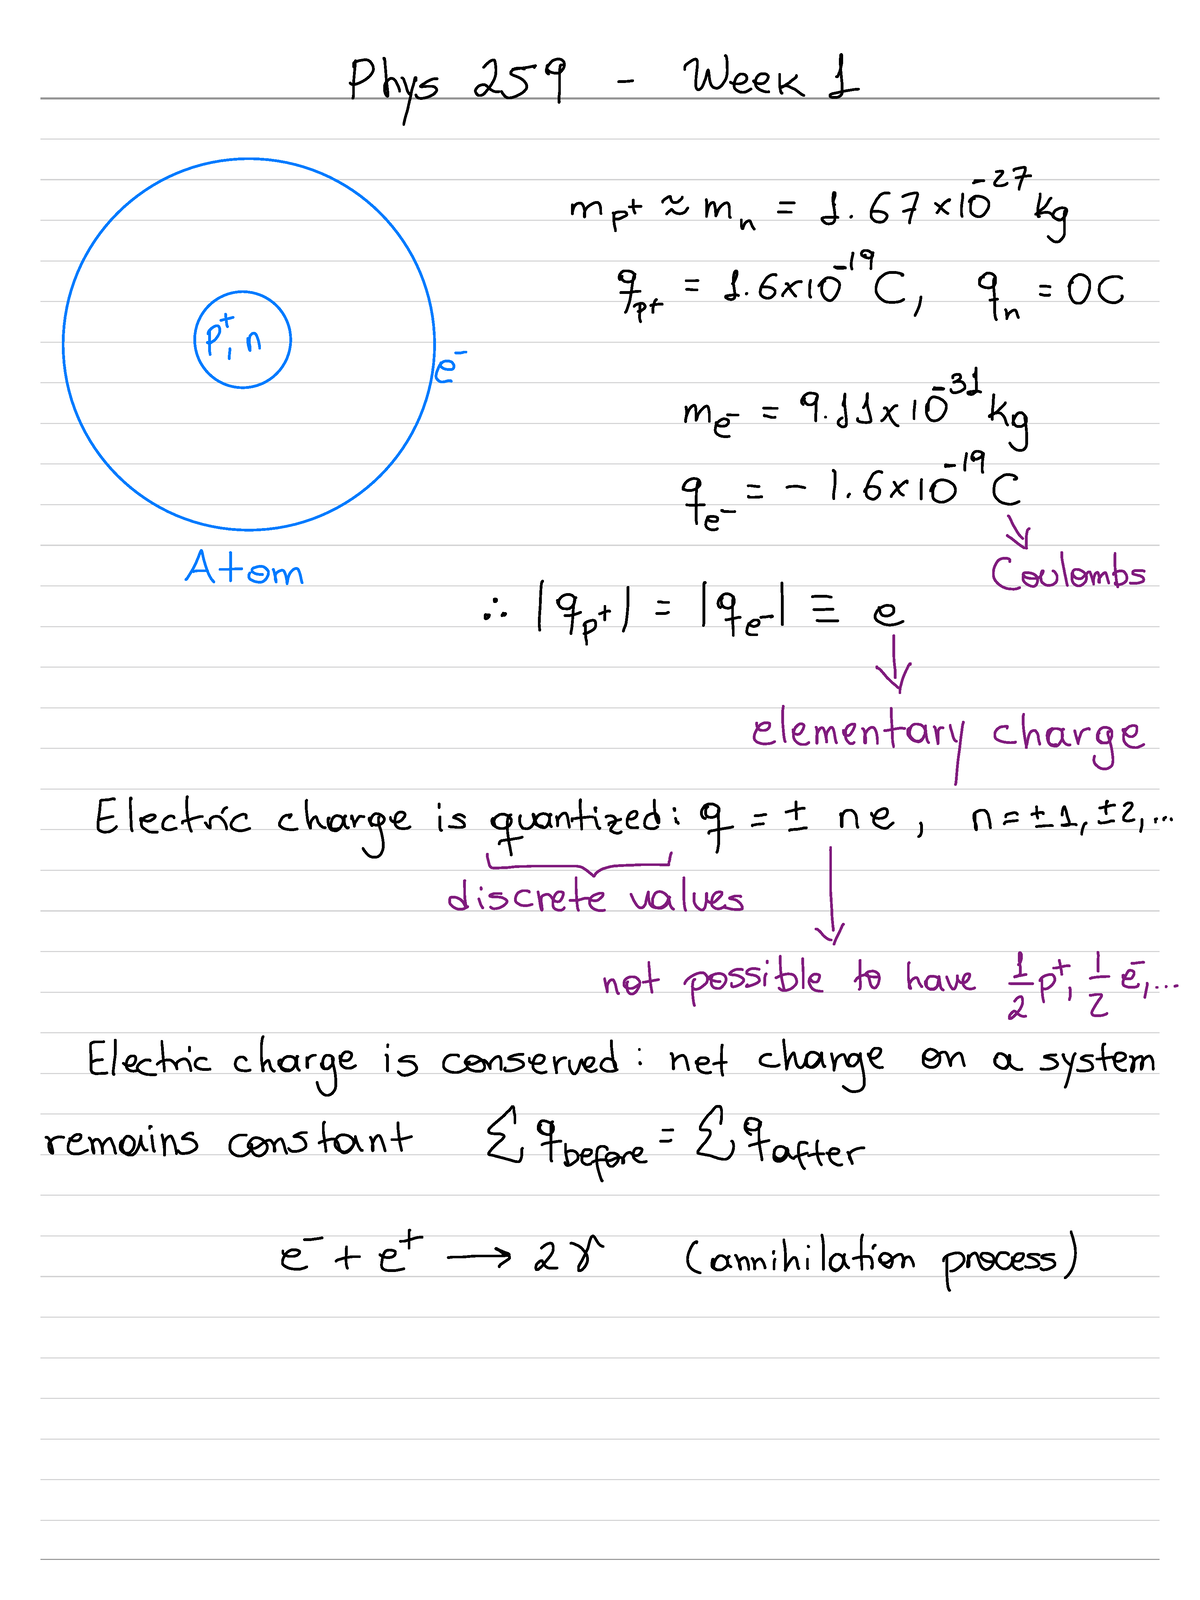 Phys 259 - Week 1
m_p+ ≈ m_n = 1.67×10^-27 kg
q_p+ = 1.6×10^-19 C, q_n = 0C
p+, n
e-
m_e- = 9.11×10^-31 kg
q_e- = - 1.6×10^-19 C
Atom
Coulombs
∴ |q_p+| = |q_e-| ≡ e
elementary charge
Electric charge is quantized: q = ± ne, n = ±1, ±2, ...
discrete values
not possible to have 1/2 p+, 1/2 e-, ...
Electric charge is conserved: net charge on a system
remains constant Σ q_before = Σ q_after
e- + e+ → 2γ (annihilation process)